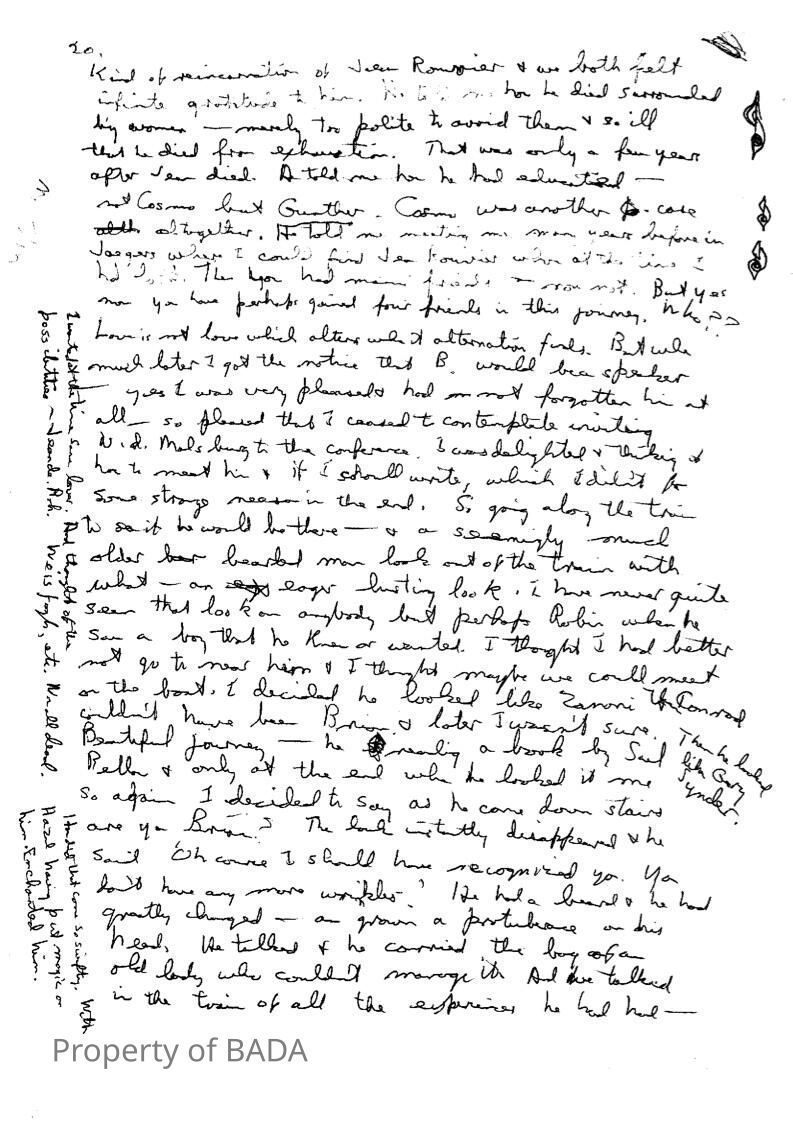 20.
Kind of reincarnation of Jean Rouvier & we both felt
infinite gratitude to him. He told me how he died surrounded
by women — merely too polite to avoid them & so ill
that he died from exhaustion. That was only a few years
after Jean died. A told me how he had educated —
not Cosmo but Gunther. Cosmo was another case
altogether. He told me meeting me many years before in
Jaegers where I could find Jean Rouvier when at the time I
had. Then you had many friends — now not. But yes
now you have perhaps gained four friends in this journey. Who??
Love is not love which alters when it alternation finds. But when
much later I got the notice that B. would be a speaker
— yes I was very pleased & had not forgotten him at
all — so pleased that I ceased to contemplate inviting
N.d. Malsburg to the conference. I was delighted & thinking of
how to meet him & if I should write, which I didn't for
some strange reason in the end. So going along the train
to see if he would be there — & a seemingly much
older bearded man look out of the train with
what — an eager hunting look. I have never quite
seen that look on anybody but perhaps Robin when he
saw a boy that he knew or wanted. I thought I had better
not go to near him & I thought maybe we could meet
on the boat. I decided he looked like Zanoni
couldn't have been Brian & later I wasn't sure. Then he looked
like Gary
Synder.
Beautiful journey — he nearly a book by Saul
Bella & only at the end when he looked at me
so again I decided to say as he came down stairs
are you Brian? The look instantly disappeared & he
said 'Of course I should have recognized you. You
don't have any more wrinkles.' He had a beard & he had
greatly changed — an grown a protuberance on his
head. He talked & he carried the bag of an
old lady who couldn't manage it. And he talked
in the train of all the experiences he had had —
I wanted at the time some lover. And thought of the
possibilities — Weisfogh, etc. Now all dead.
How does that come so simply. With
Hazel having put magic on
him. Enchanted him.
Property of BADA